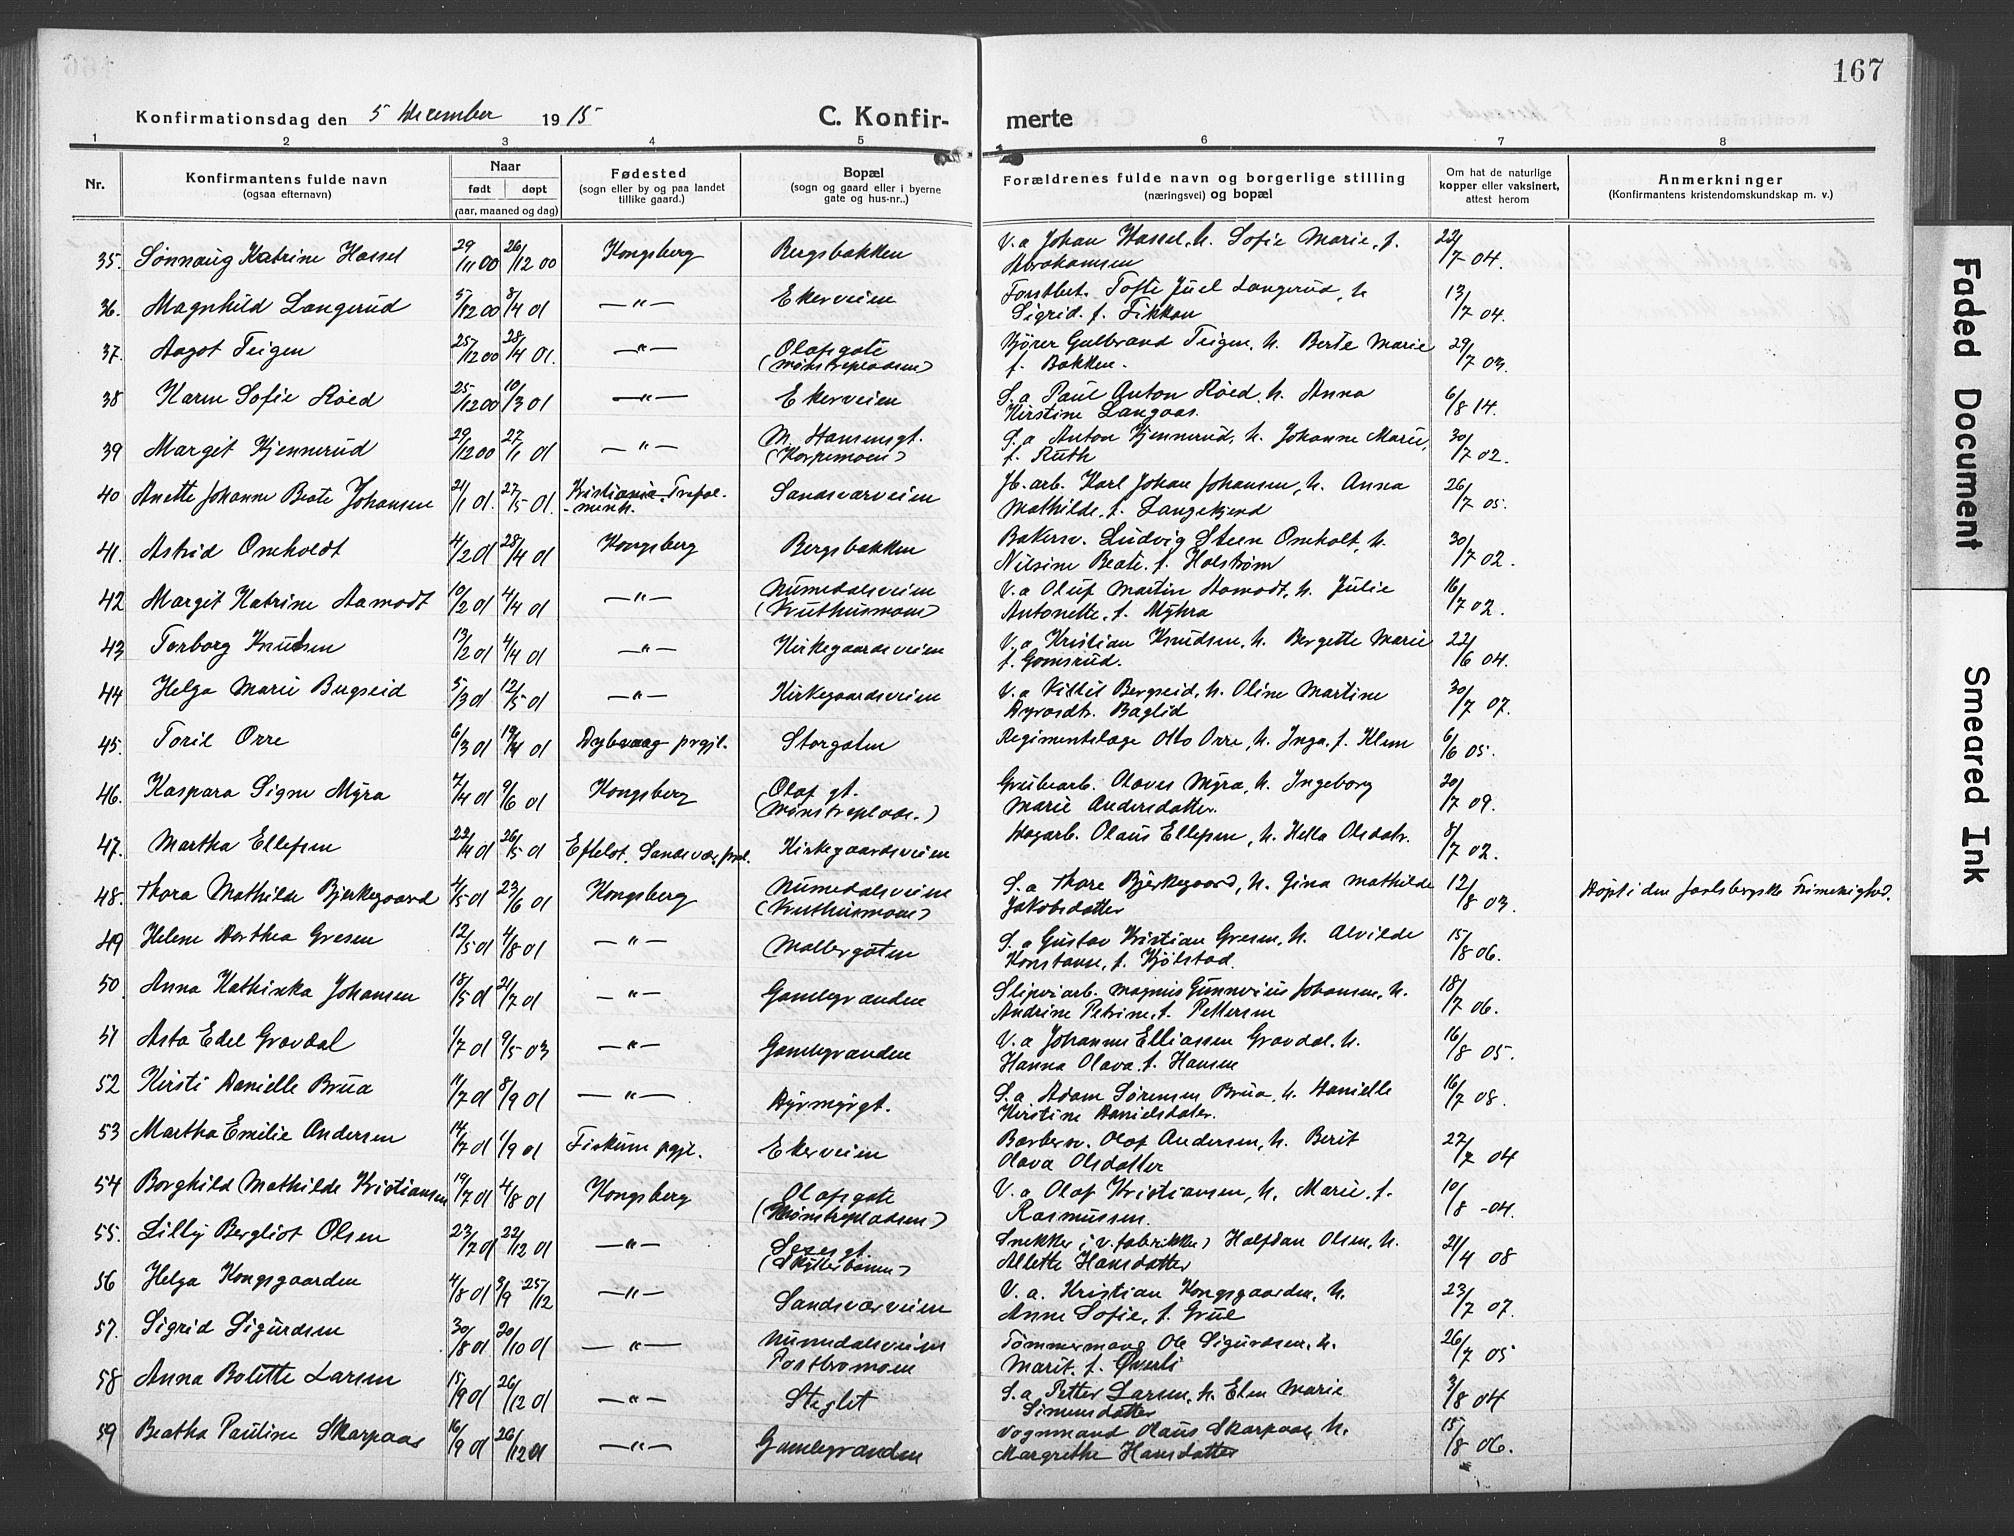 167
Konfirmationsdag den 5 December 1915 C. Konfirmerte
1 2 3 4 5 6 7 8
Nr. Konfirmantens fulde navn (ogsaa efternavn) Naar født døpt (aar, maaned og dag) Fødested (sogn eller by og paa landet tillike gaard.) Bopæl (sogn og gaard eller i byerne gate og hus-nr..) Forældrenes fulde navn og borgerlige stilling (næringsvei) og bopæl Om hat de naturlige kopper eller vaksinert, attest herom Anmerkninger (Konfirmantens kristendomskundskap m. v.)
35. Sønnaug Katrine Hassel 29/11 00 26/12 00 Kongsberg Bergsbakken V.a Johan Hassel, h. Sofie Marie, f. Abrahamsen 22/7 04.
36. Magnhild Langerud 5/12 00 8/4 01 —"— Ekerveien Forstbet. Tofte Juel Langerud, h Sigrid. f. Fikkan 13/7 04.
37. Aagot Teigen 25/12 00 28/4 01. —"— Olafsgate (Mønstrepladsen) Kjører Gulbrand Teigen, h. Berte Marie f. Bakken. 29/7 03.
38 Karen Sofie Røed 25/12 00 10/3 01 —"— Ekerveien S.a Paul Anton Røed, h. Anna Kirstine Langaas. 6/8 14.
39 Margit Kjennerud 29/12 00 27/1 01 —"— M. Hansensgt. (Korpemoen) S.a Anton Kjennerud, h. Johanne Marie, f. Ruth 30/7 02.
40 Anette Johanne Beate Johansen 21/1 01. 27/5 01. Kristiania. Trefol.-menh. Sandsværveien Jb.arb. Karl Johan Johansen, h. Anna Mathilde. f. Langekjend 26/7 05.
41. Astrid Omholdt 4/2 01 28/4 01 Kongsberg Bergsbakken Bakersv. Ludvig Steen Omholt, h. Nilsine Beate. f. Holstrøm 30/7 02.
42 Margit Katrine Aamodt 10/2 01 4/4 01 —"— Numedalsveien (Knuthusmoen) V.a Oluf Martin Aamodt, h. Julie Antonette, f. Myhra 16/7 02.
43 Torborg Knudsen 13/2 01 4/4 01 —"— Kirkegaardsveien V.a, Kristian Knudsen, h. Bergette Marie f. Gomsrud. 22/6 04.
44 Helga Marie Bergseid 5/3 01 12/5 01 —"— Kirkegaardsveien V.a Kittil Bergseid, h. Oline Martine Ayvosdtr. Baglid 30/7 07.
45. Toril Orre 6/3 01 19/4 01 Dybvaag prgjl. Storgaten Regimentslæge Otto Orre, h. Inga, f. Klem 6/6 05.
46. Kaspara Signe Myra 7/4 01 9/6 01 Kongsberg Olafsgt. (Mønstreplads.) Grubearb. Olaves Myra, h. Ingeborg Marie Andersdatter. 20/7 09.
47. Martha Ellefsen 22/4 01 26/5 01 Efteløt. Sandsvær prgl. Kirkegaardsveien Dagarb. Olaus Ellefsen, h. Helle Olsdatr. 8/7 02.
48. Thora Mathilde Bjerkegaard 4/5 01 23/6 01 Kongsberg Numedalsveien (Knuthusmoen) S.a Thore Bjerkegaard, h. Gina Mathilde Jakobsdatter 12/8 03. Døpt i den jarlsbergske Frimenighed.
49 Helene Dorthea Gresen 12/5 01 4/8 01 —"— Møllergaten S.a Gustav Kristian Gresen, h. Alvilde Konstanse, f. Kjølstad. 15/8 06.
50. Anna Kathinka Johansen 18/5 01 21/7 01 —"— Gamlegranden Sliperiarb. Magnus Gunnerius Johansen, h. Andrine Petrine, f. Pettersen 18/7 06.
51 Asta Edel Gravdal 1/7 01 9/5 03 —"— Gamlegranden V.a Johannes Elliassen Gravdal, h. Hanna Olava. f. Hansen 16/8 05.
52 Kirsti Danielle Brua 11/7 01 8/9 01 —"— Dyrmyrgt. S.a Adam Sørensen Brua, h. Danielle Kirstine Danielsdater. 16/7 08.
53 Martha Emilie Andersen 14/7 01 1/9 01 Fiskum pgjl. Ekerveien Barbersv. Olaf Andersen, h. Berit Olava Olsdatter 27/7 04
54 Borghild Mathilde Kristiansen 19/7 01 4/8 01 Kongsberg Olafsgate (Mønstrepladsen) V.a Olaf Kristiansen, h. Marie. f. Rasmussen. 10/8 -04.
55. Lilly Bergliot Olsen 23/7 01 22/12 01 —"— (Skytterbanen) Snekker i v. fabrikken Halfdan Olsen, h. Albette Hansdatter 21/4 08
56 Helga Kongsgaarden 4/8 01 3/9 25/12 —"— Sandsværveien V.a. Kristian Kongsgaarden, h. Anne Sofie, f. Grue 23/7 07.
57. Sigrid Sigurdsen 30/8 01 20/10 01 —"— Numedalsveien Tømmermand Ole Sigurdsen, h. Marit. f. Øverli 26/7 05
58 Anna Bolette Larsen 15/9 01 26/12 01 —"— Steglet S.a, Petter Larsen, h. Elen Marie Simensdatter 3/8 04
59 Beatha Pauline Skarpaas 16/9 01 26/12 01 —"— Gamlegranden Vognmand Olaus Skarpaas, h. Margrethe Hansdatter 15/8 06.
Faded Document
Smeared Ink